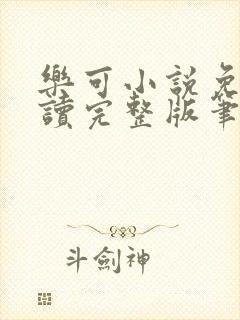 樂可小說免
讀完整版筆
斗劍神